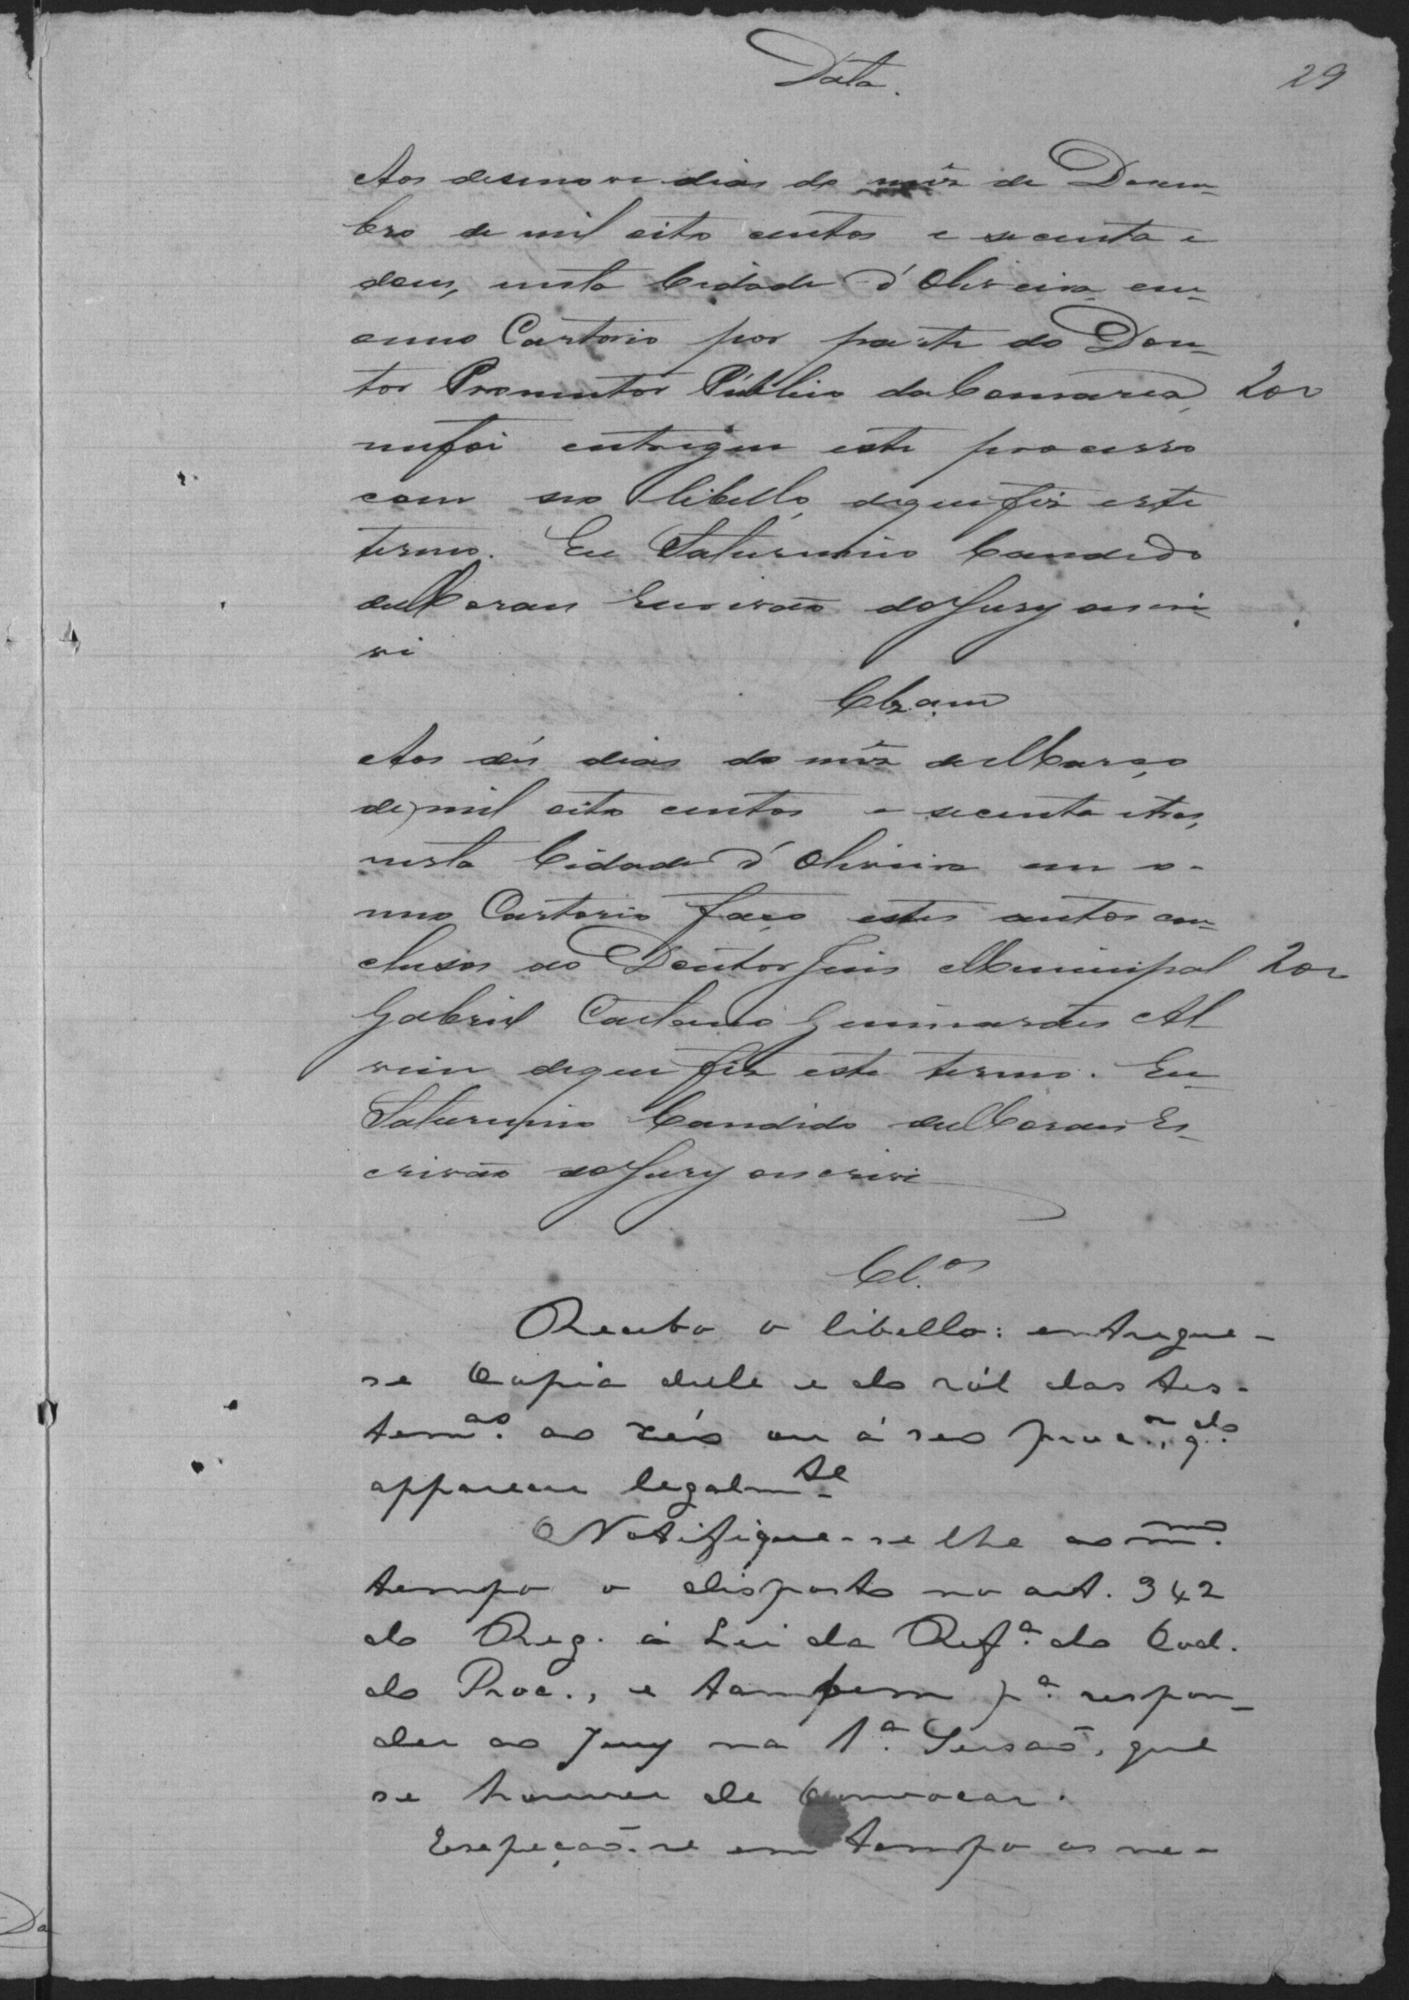 Data.
29
Aos desenove dias do mês de Desem-
bro de mil oito centos e secenta e
dous, nesta Cidade d'Oliveira em
o meo Cartorio por parte do Dou-
tor Promutor Público da Comarca, 200
mefoi entregue este processo
com seo libello, dequefiz este
termo. Eu Saturnino Candido
deMoraes Escrivão doJury oescri-
vi
Clzam
Aos dés dias do mês deMarço
de mil oito centos e secenta etres,
nesta Cidade d'Oliveira em o
meo Cartorio faço estes autos con-
clusos ao Doutor Juis Municipal 200
Gabriel Caetano Guimarães Al
vim dequefiz este termo. Eu
Saturnino Candido deMoraes Es-
crivão doJury oescrivi
Cl.os
Recebo o libello: entregue-
se Copia delle e do ról das tes-
tem.as ao réo ou á seo proc.or, q.do
apparecer legalm.te
Notifique-se lhe ao m.mo
tempo o disposto no art. 342
do Reg. á Lei da Ref.a do Cod.
do Proc., e tambem p.a respon-
der ao Jury na 1.a Sessaõ, que
se houver de Convocar.
Exspeçaõ-se em tempo os ne-